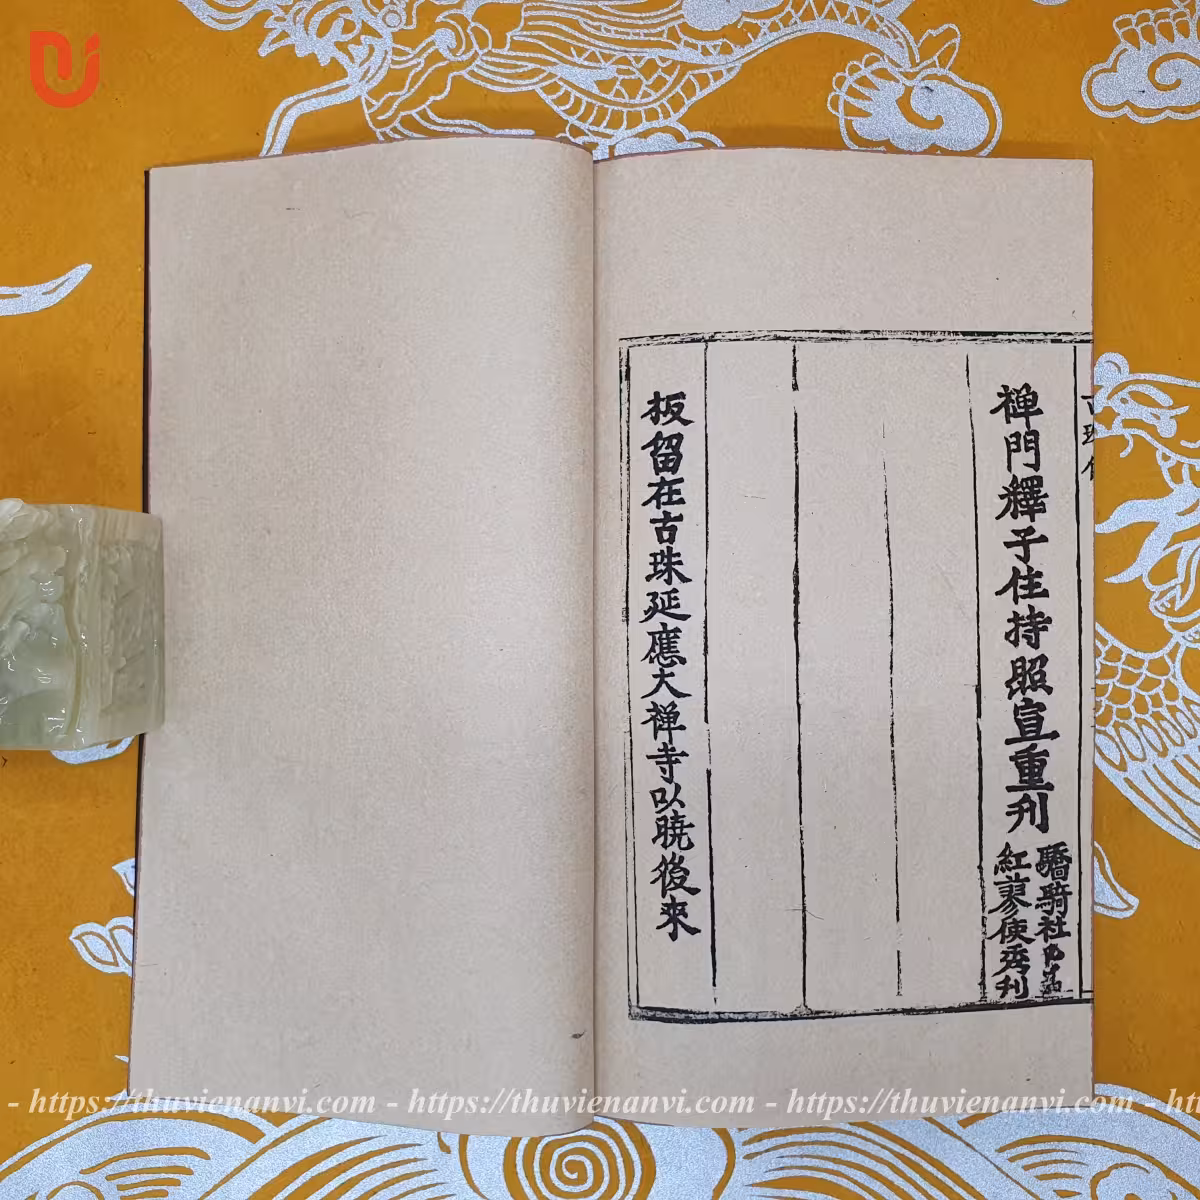 禅門釋子住持照宣重刊
驕騎社
紅蓼使秀刊
板留在古珠延應大禅寺以曉後來
- https://thuvienanvi.com - https://thuvienanvi.com - https://thuvienanvi.com - ht